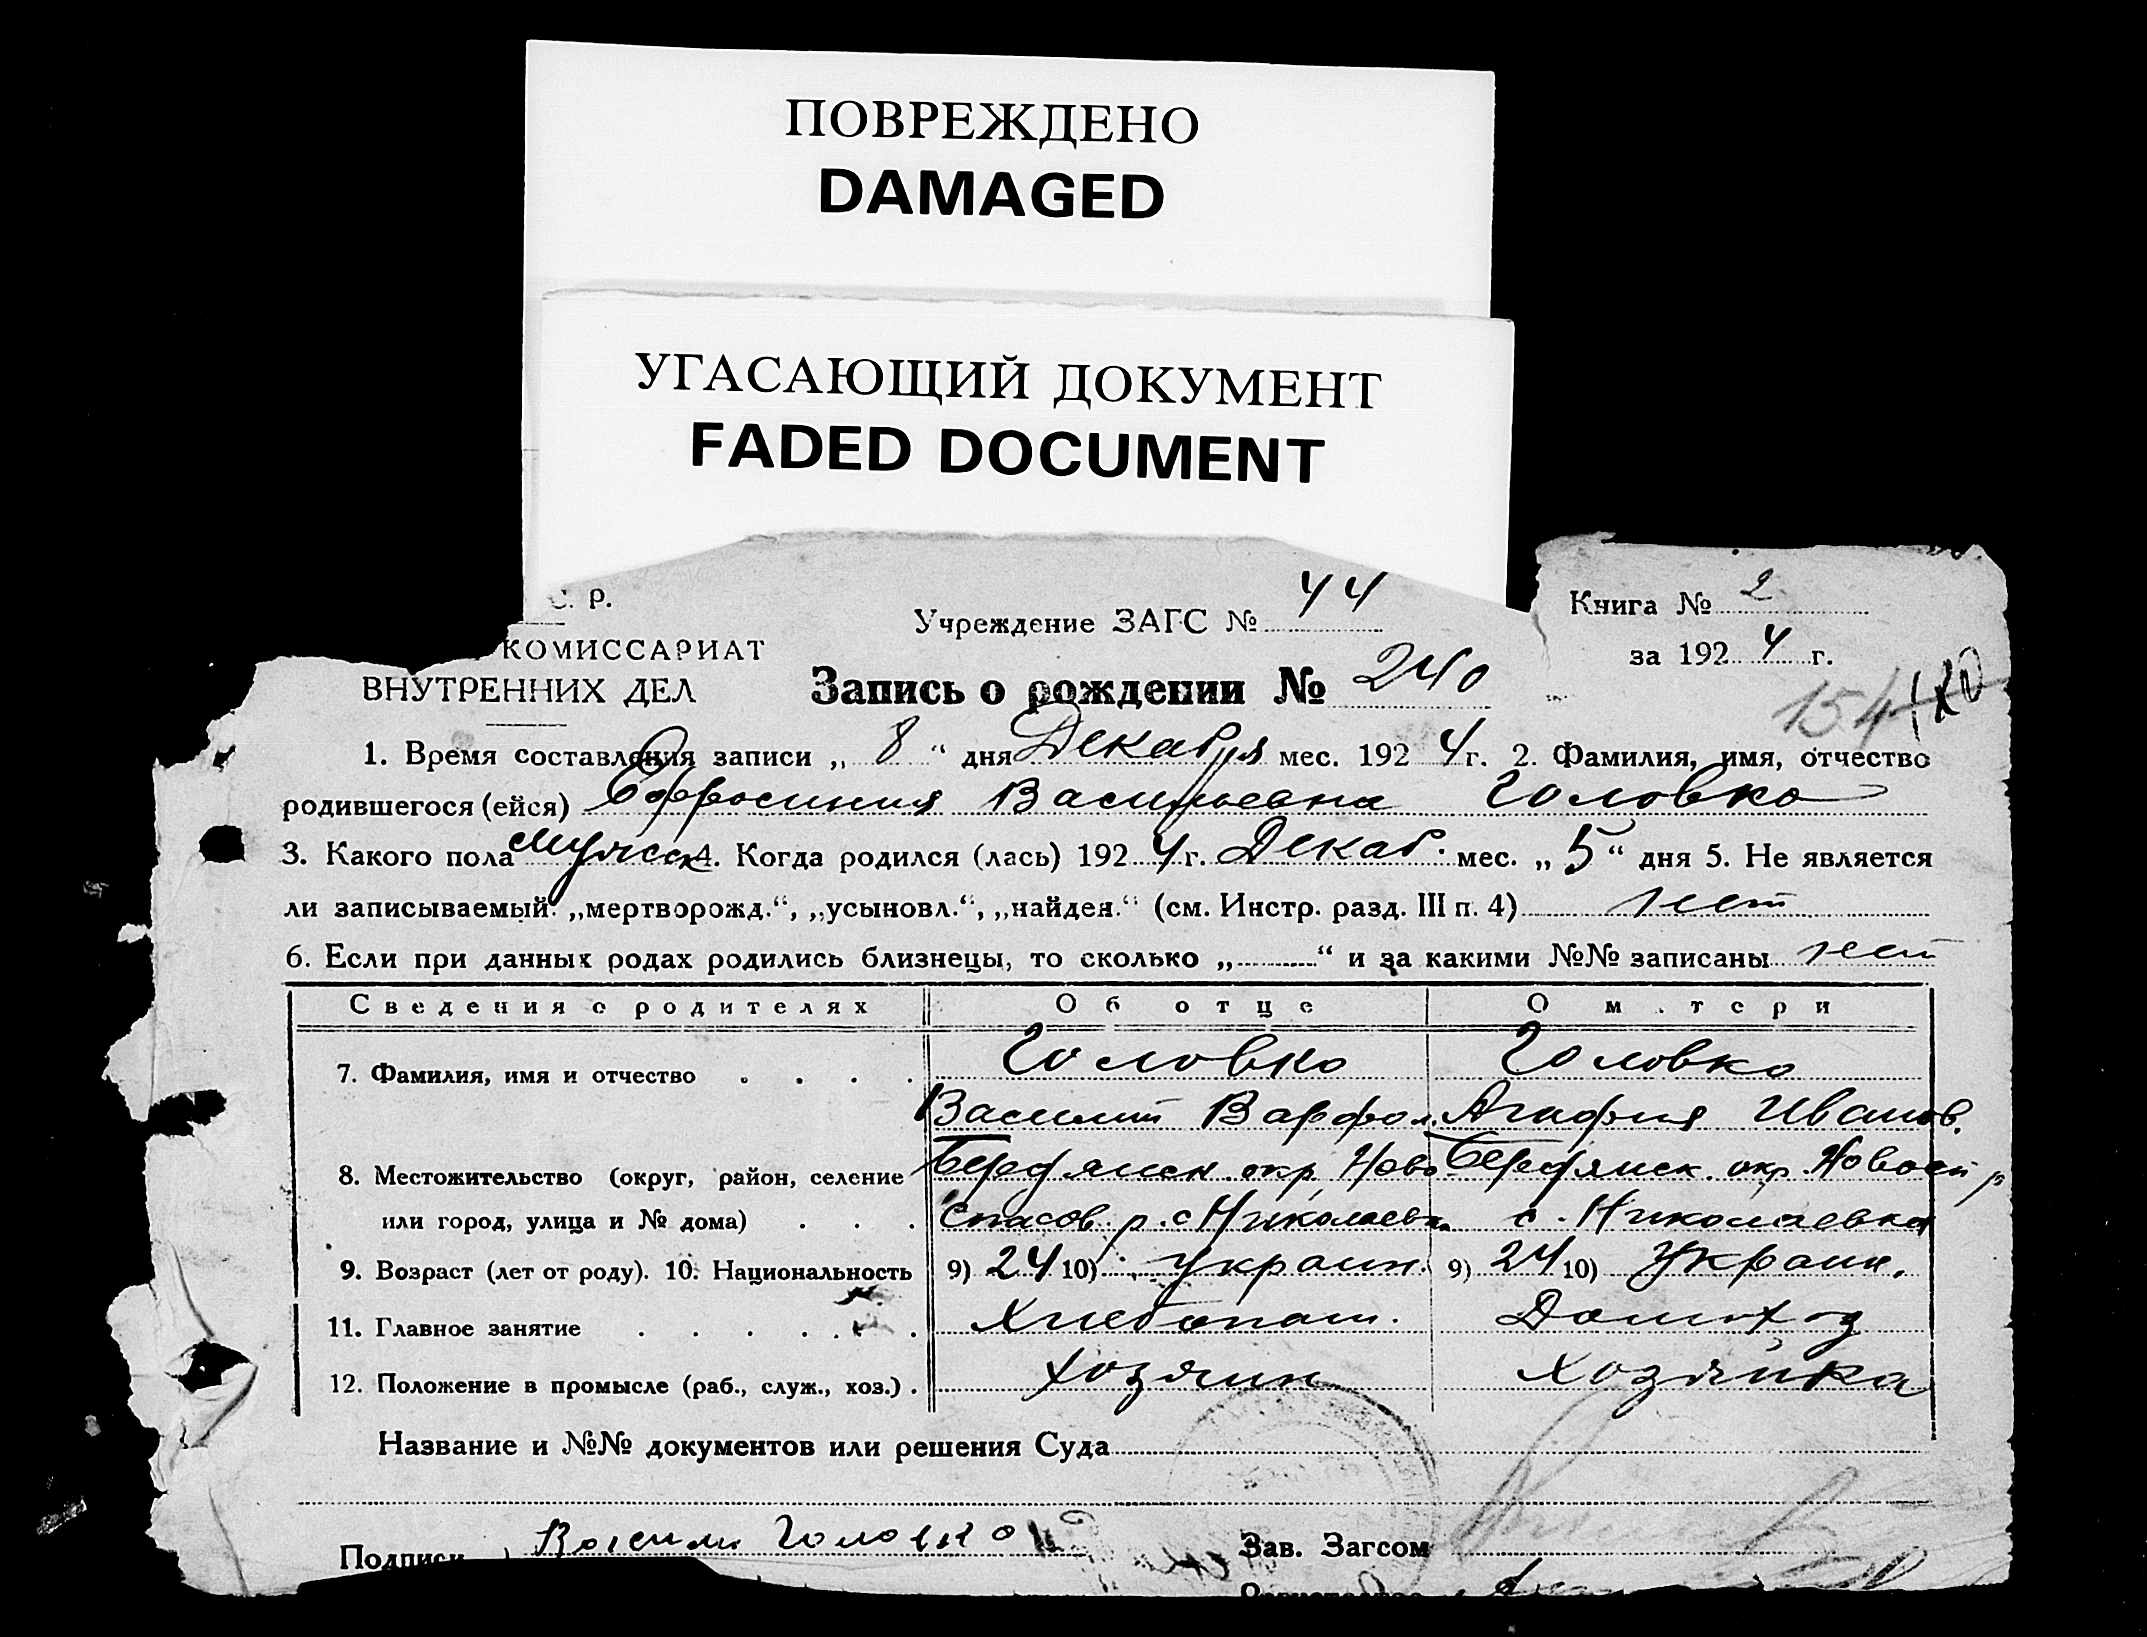 ПОВРЕЖДЕНО
DAMAGED
УГАСАЮЩИЙ ДОКУМЕНТ
FADED DOCUMENT
С. Р.
КОМИССАРИАТ
ВНУТРЕННИХ ДЕЛ
Учреждение ЗАГС № 44
Запись о рождении № 240
Книга № 2
за 1924 г.
154
1. Время составления записи „ 8 “ дня Декабря мес. 1924 г. 2. Фамилия, имя, отчество
родившегося (ейся) Ефросиния Васильевна Головко
3. Какого пола мужск 4. Когда родился (лась) 1924 г. Декаб. мес. „ 5 “ дня 5. Не является
ли записываемый: „мертворожд.“, „усыновл.“, „найден.“ (см. Инстр. разд. III п. 4) нет
6. Если при данных родах родились близнецы, то сколько „ “ и за какими №№ записаны нет
Сведения о родителях Об отце О м тери
7. Фамилия, имя и отчество Головко Головко
Василий Варфол. Агафия Иванов.
8. Местожительство (округ, район, селение Бердянск. окр. Ново Бердянск. окр. Новосп р
или город, улица и № дома) Спасов. р. с Николаевк. с. Николаевка
9. Возраст (лет от роду). 10. Национальность 9) 24 10) украин. 9) 24 10) Украин.
11. Главное занятие Хлебопаш. Домохоз
12. Положение в промысле (раб., служ., хоз.) хозяин хозяйка
Название и №№ документов или решения Суда
Подписи Васили Головко
Зав. Загсом